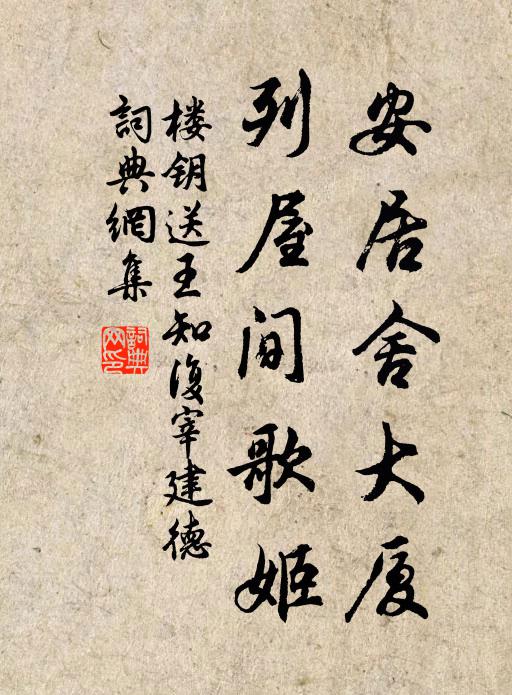 安居舍大厦
列屋间歌姬
楼钥送王知復宰建德
詞典網集
詞典網印